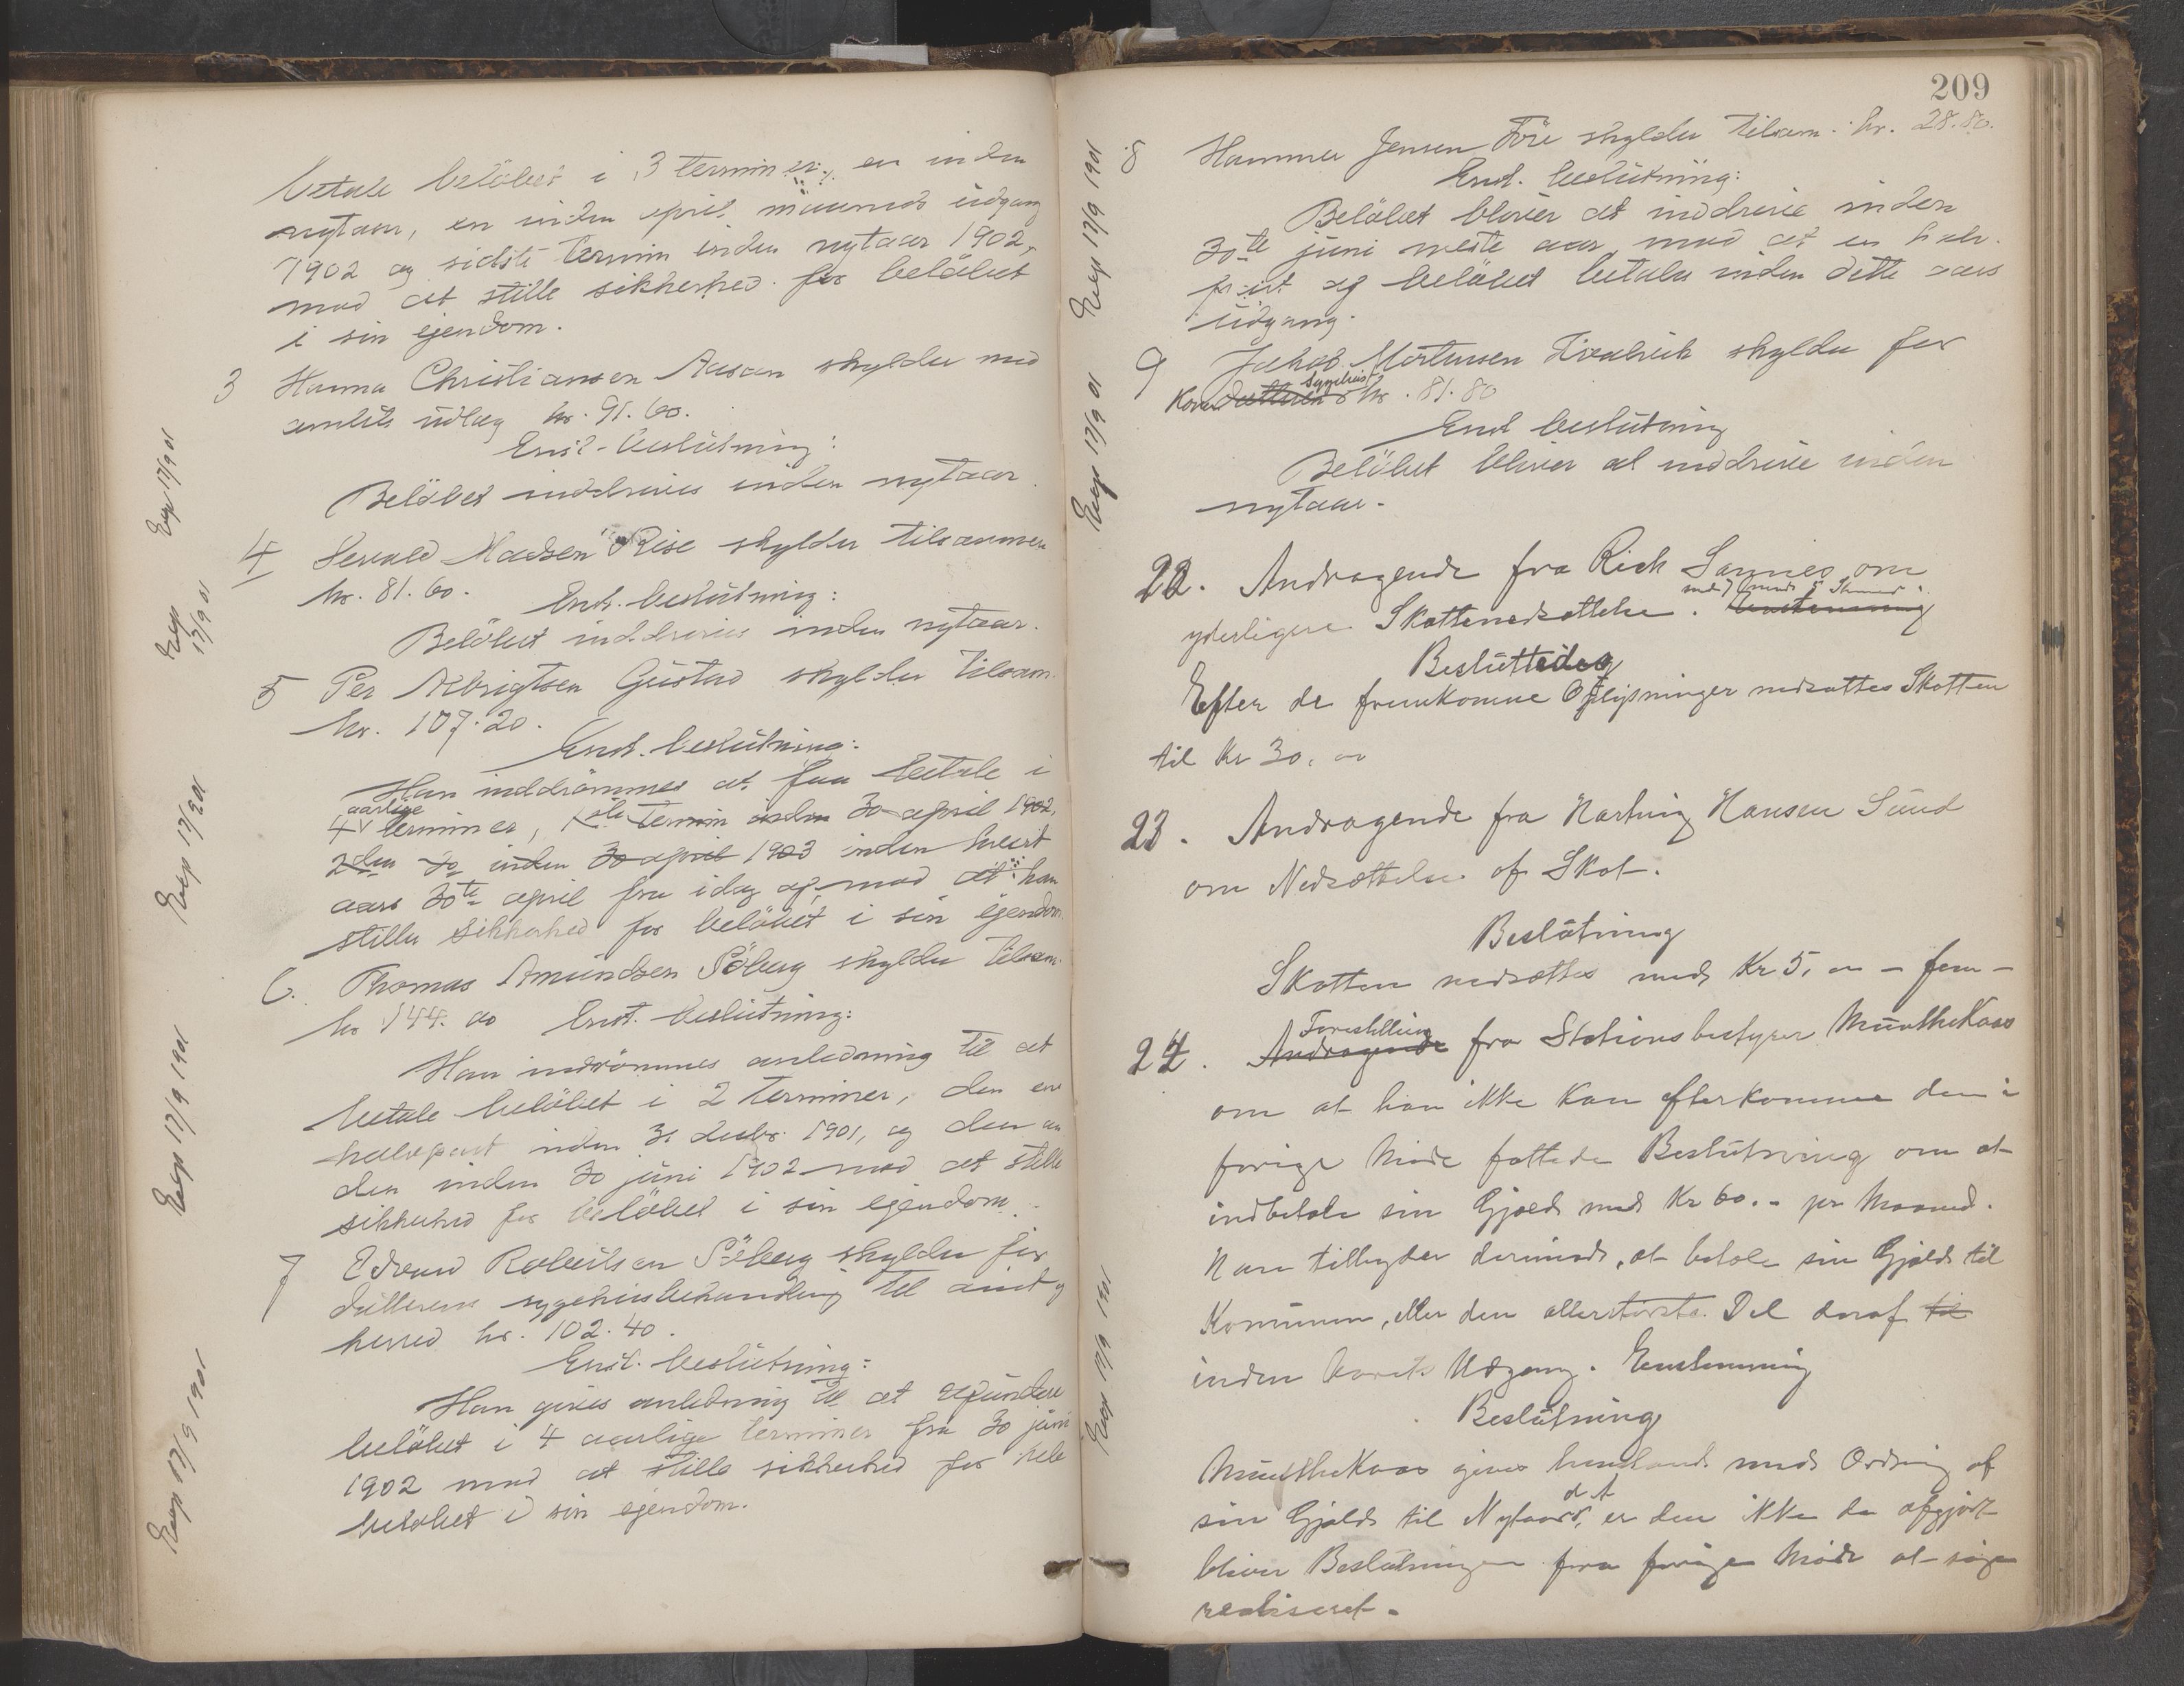 betale belöbet i 3 terminer, en inden
nytaar, en inden april maaneds udgang
1902 og sidste termin inden nytaar 1902,
mod at stille sikkerhed for belöbet
i sin ejendom.
3 Hanna Christiansen Aasan skylder med
amtets udlæg kr. 91.60.
Enst. beslutning:
Belöbet inddrives inden nytaar.
Exp 17/9 01
4 Sevald Madsen Rise skylder tilsammen
kr. 81.60. Enst. beslutning:
Belöbet inddrives inden nytaar.
Exp 17/9 01
5 Per Albrigtsen Gustad skylder tilsam.
kr. 107.20.
Enst. beslutning:
Han inddrömmes at faa betale i
4 aarlige terminer, 1ste termin inden 30 april 1902,
2den do inden 30 april 1903 inden hvert
aars 30te april fra idag af, mod at han
stiller sikkerhed for belöbet i sin ejendom.
Exp 17/9 01
6. Thomas Amundsen Söberg skylder tilsam.
kr 144.00 Enst. beslutning:
Han indrömmes anledning til at
betale belöbet i 2 terminer, den ene
halvpart inden 31 decbr. 1901, og den an
den inden 30 juni 1902 mod at stille
sikkerhed for belöbet i sin ejendom.
Exp 17/9 1901
7 Edvard Robertsen Söberg skylder for
datterens sygehusbehandling til amt og
herred kr. 102.40.
Enst. beslutning:
Han gives anledning til at refundere
belöbet i 4 aarlige terminer fra 30 juni
1902 mod at stille sikkerhed for hele
belöbet i sin ejendom.
Exp 17/9 1901
209
8 Hammer Jensen Före skylder tilsam. kr. 28.80.
Enst. beslutning:
Belöbet bliver at inddrive inden
30te juni næste aar mod at en halv-
part af belöbet betales inden dette aars
udgang.
Exp 17/9 1901
9 Jakob Mortensen skylder for
Konens datteren s Sygehus kr. 81.80
Enst beslutning
Belöbet bliver at inddrive inden
nytaar.
Exp 17/9 01
22. Andragende fra Rich Sannes om
yderligere Skattenedsættelse. med mod 5 Stemmer Enstemmig
Besluttedes
Efter de fremkomne Oplysninger nedsattes Skatten
til Kr 30,00
23. Andragende fra Hartvig Hansen Sund
om Nedsættelse af Skat.
Beslutning
Skatten nedsættes med Kr 5,00 – fem –
24. Andragende Forestilling fra Stationsbestyrer MuntheKaas
om at han ikke kan efterkomme den i
forige Möde fattede Beslutning om at
indbetale sin Gjæld med Kr 60.- pr Maaned.
Han tilbyder derimod, at betale sin Gjæld til
Kommunen, eller den allerstörste Del deraf til
inden Aarets Udgang. Enstemmig
Beslutning
MuntheKaas gives henstand med Ordning af
sin Gjæld til Nytaar d. A., er den ikke da afgjort
bliver Beslutningen fra forige Möde at söge
realiseret.
Exp 17/9 1901